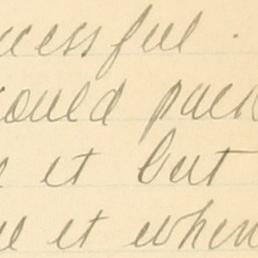 cessful.
could pack
it but
it when